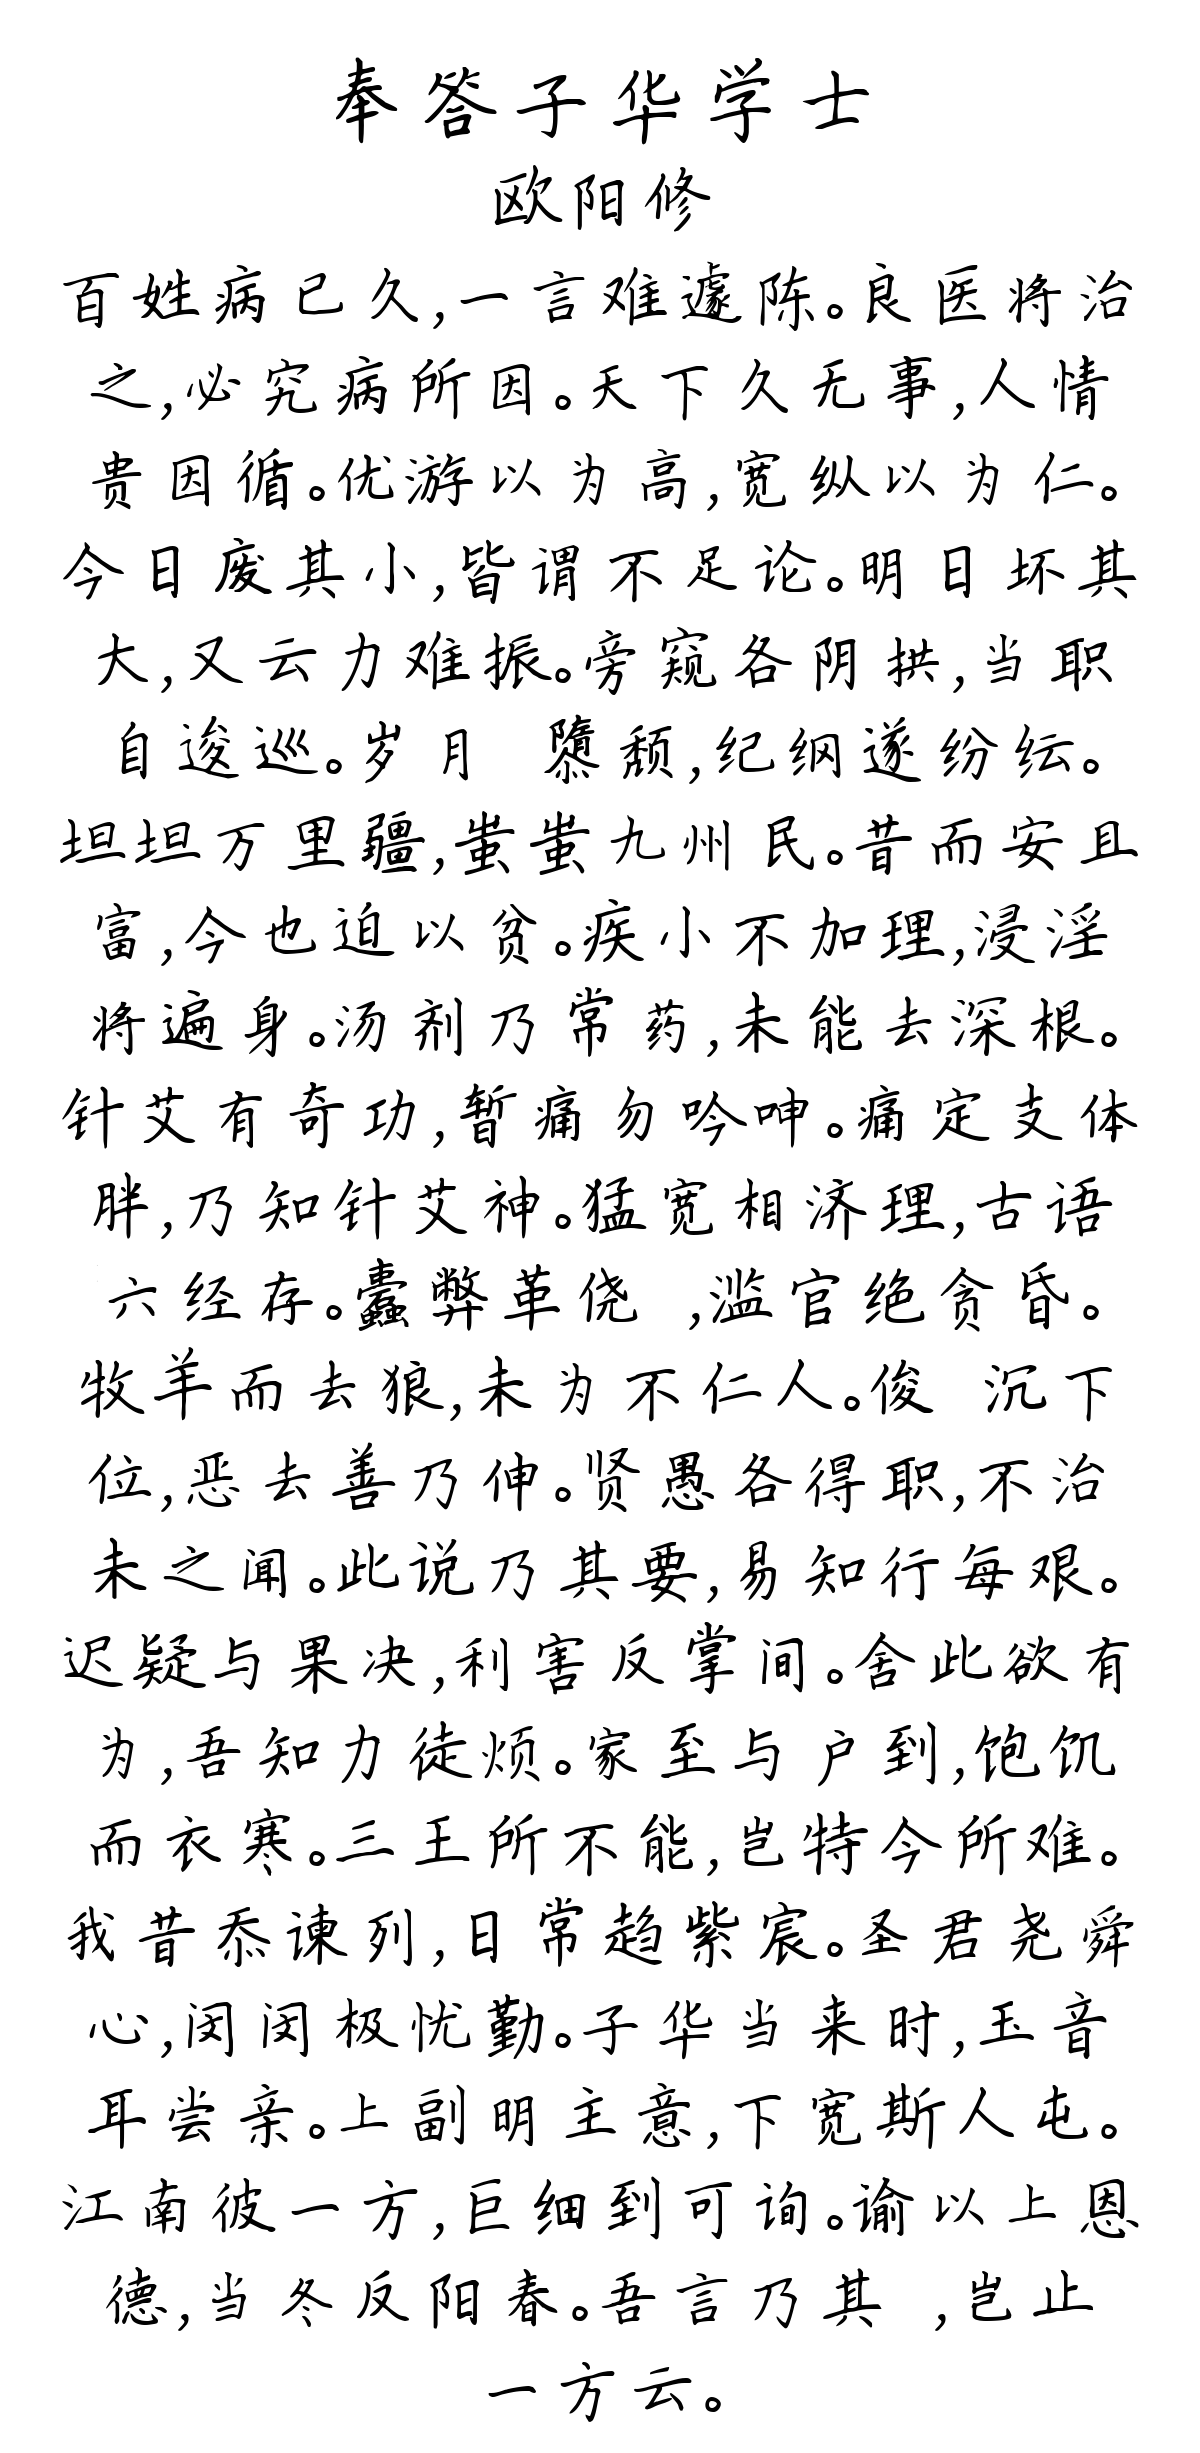 奉答子华学士
欧阳修
百姓病已久,一言难遽陈。良医将治
之,必究病所因。天下久无事,人情
贵因循。优游以为高,宽纵以为仁。
今日废其小,皆谓不足论。明日坏其
大,又云力难振。旁窥各阴拱,当职
自逡巡。岁月 隳颓,纪纲遂纷纭。
坦坦万里疆,蚩蚩九州民。昔而安且
富,今也迫以贫。疾小不加理,浸淫
将遍身。汤剂乃常药,未能去深根。
针艾有奇功,暂痛勿吟呻。痛定支体
胖,乃知针艾神。猛宽相济理,古语
六经存。蠹弊革侥 ,滥官绝贪昏。
牧羊而去狼,未为不仁人。俊 沉下
位,恶去善乃伸。贤愚各得职,不治
未之闻。此说乃其要,易知行每艰。
迟疑与果决,利害反掌间。舍此欲有
为,吾知力徒烦。家至与户到,饱饥
而衣寒。三王所不能,岂特今所难。
我昔忝谏列,日常趋紫宸。圣君尧舜
心,闵闵极忧勤。子华当来时,玉音
耳尝亲。上副明主意,下宽斯人屯。
江南彼一方,巨细到可询。谕以上恩
德,当冬反阳春。吾言乃其 ,岂止
一方云。